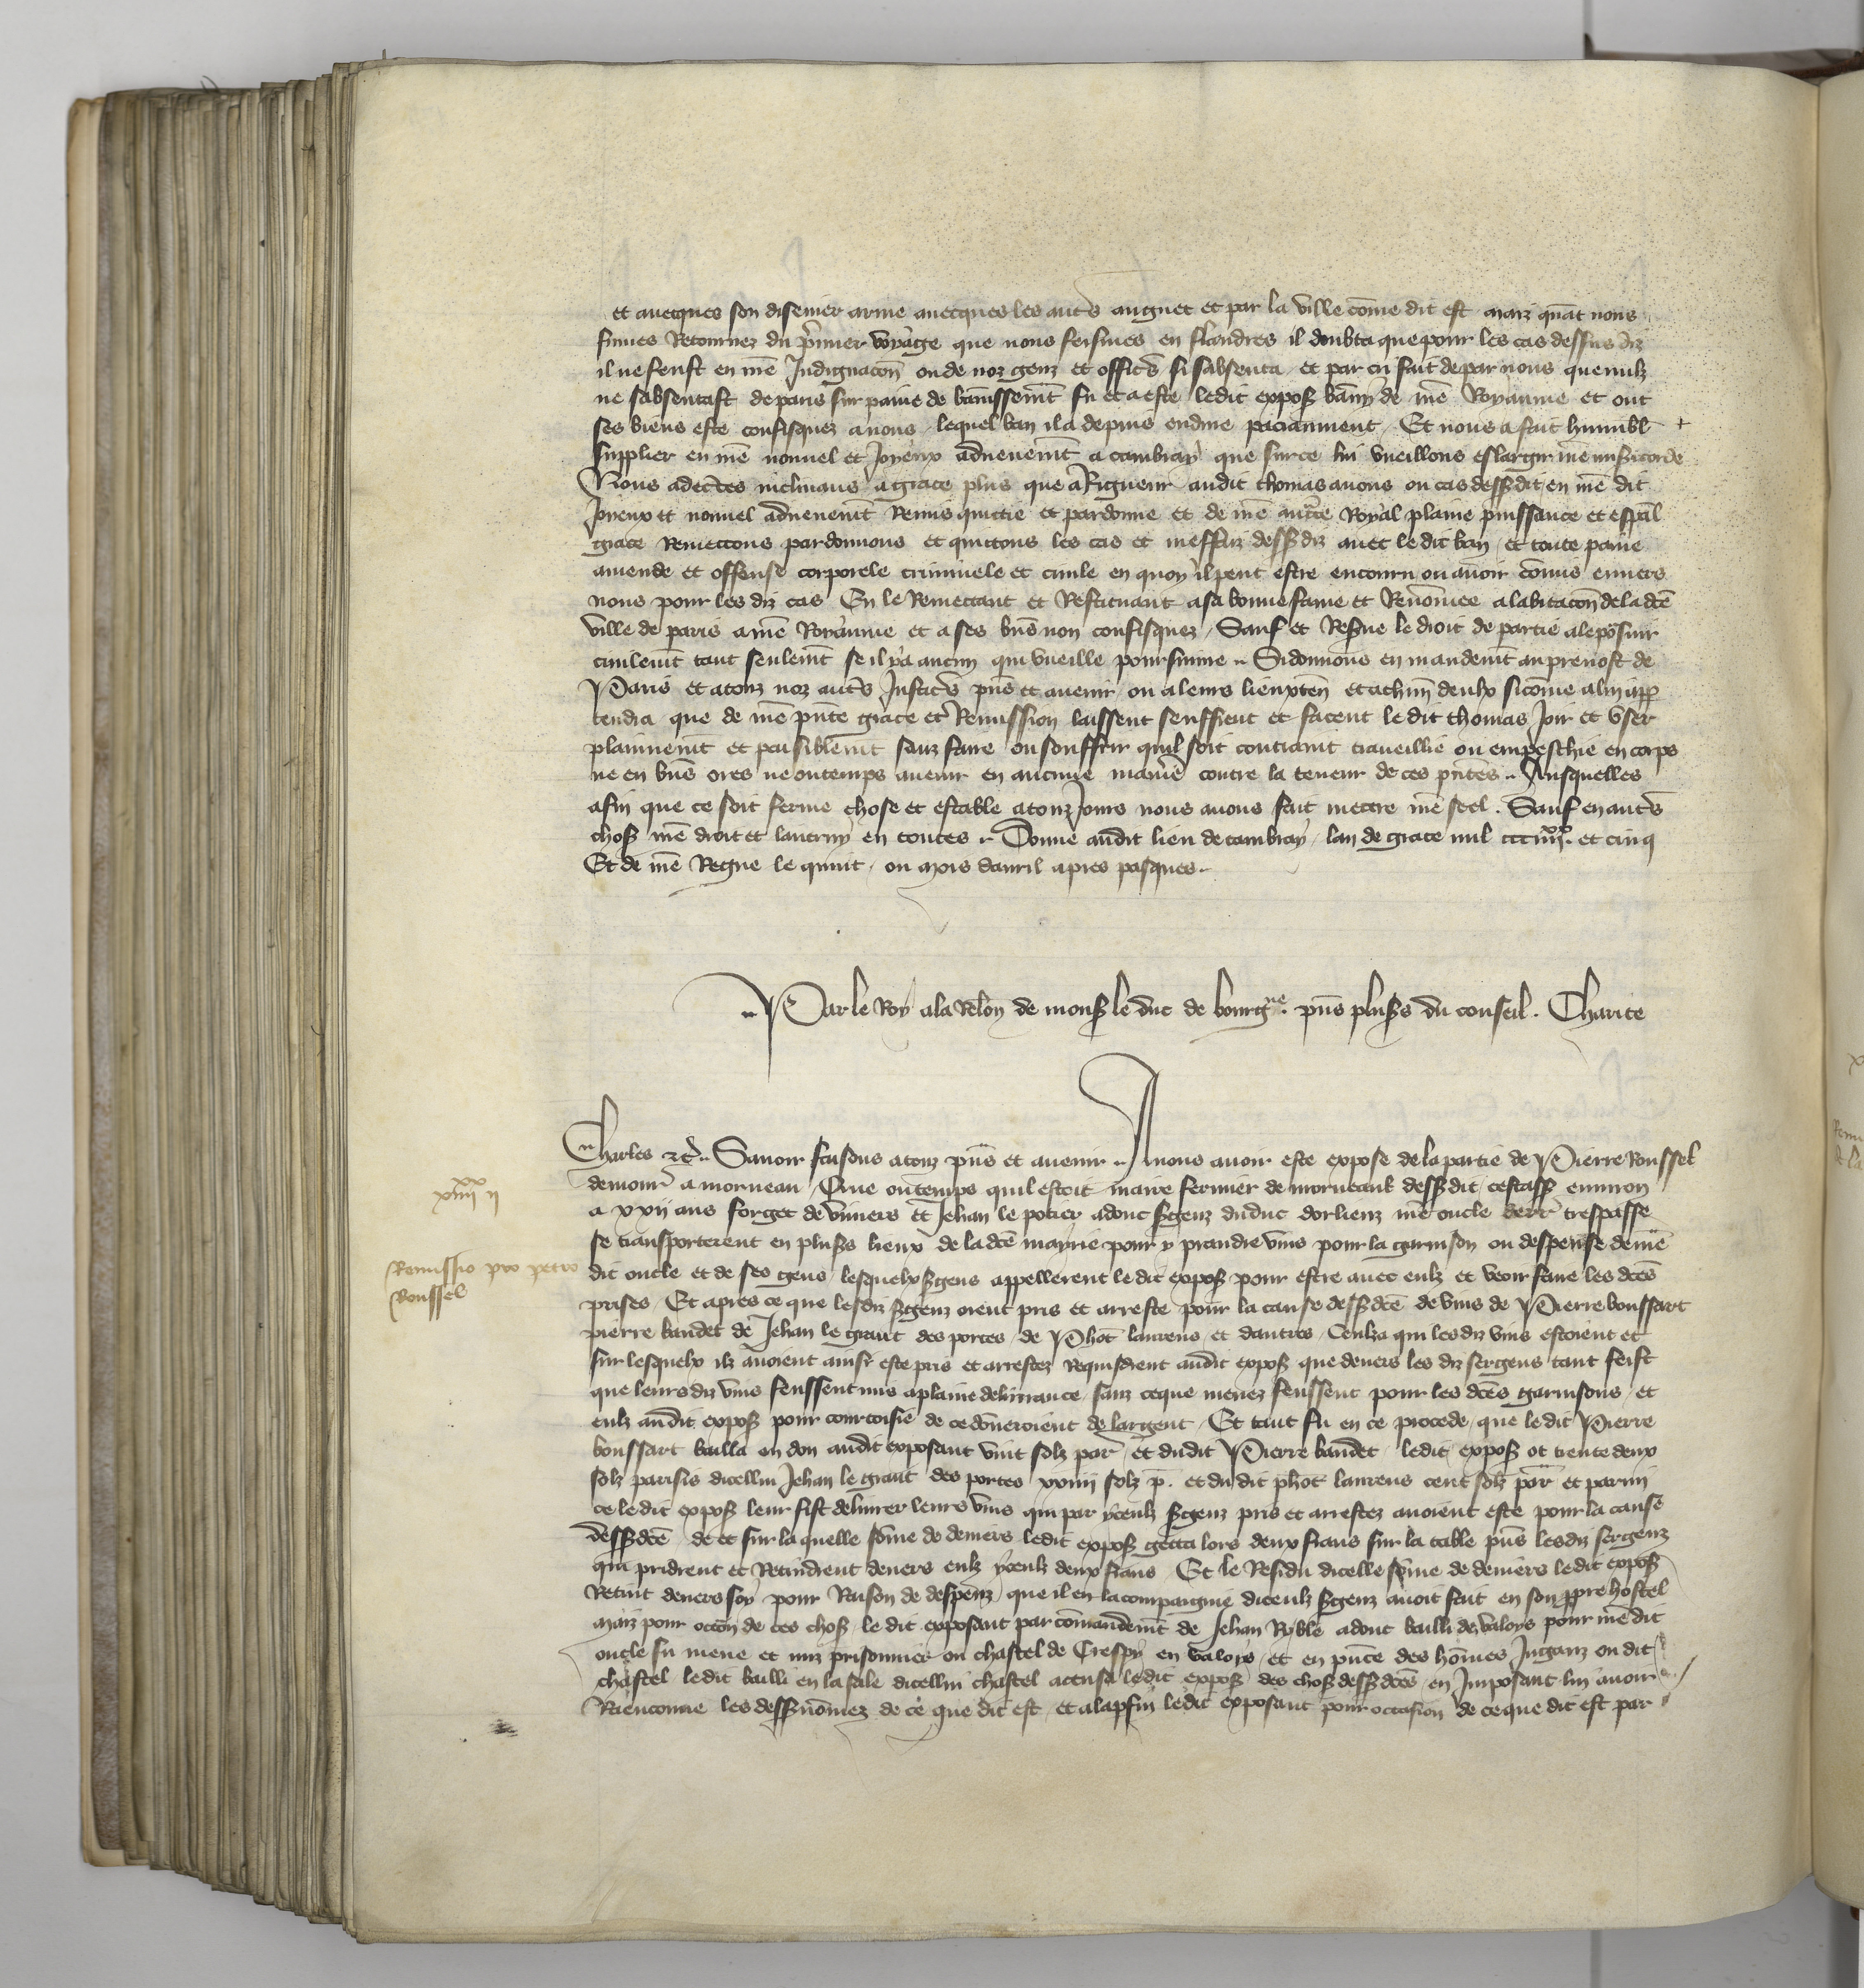 et auecques son disenier arme auecques les autrs auguet et par la ville cõme dit est maiz quãt nous
fumes Retournez du p̃mier voyage que nous feismes en flandres il doubta que pour les cas dessus diz
il ne feust en nrẽ Indignacõn ou de noz genz et officrs̃ si sabsenta et par cri fait de par nous que nulz
ne sabsentast de paris sur paine de bãnissem̃t fu et a este ledit expos bãny de nrẽ Royaume et ont
ses biens este confisquez a nous lequel ban il a depuis endure paciamment Et nous a fait humbl
supplier en nrẽ nouuel et Joyeux aduenem̃t a cambray que sur ce lui vueillons eslargir nrẽ misicorde
Nous adcrtes inclinans a grace plus que a Rigueur audit thomas auons ou cas dessdit en nrẽ dit
Joyeux et nouuel aduenem̃t Remis quictie et pardonne et de nrẽ auctte Royal plaine puissance et espãl
grace Remectons pardonnons et quictons les cas et meffaiz dessdiz auec ledit ban et toute paine
amende et offense corporele criminele et ciuile en quoy il peut estre encouru ou auoir cõmis enuers
nous pour les diz cas En le Remectant et Restituant a sa bonne fame et Renõmee a labitacõn de la dcẽ
ville de paris a nrẽ Royaume et a ses bñs non confisquez Sauf et Resrue le droit de partie a le psuir
ciuilem̃t tant seulem̃t se il y a aucun qui vueille poursuiure Si donnons en mandem̃t au preuost de
Paris et a touz noz autrs̃ Justicrs̃ pñs et auenir ou a leurs lieuxteñ et a chũn deulx sicõme a lui app
tendra que de nrẽ pñte grace et Remission laissent seuffrent et facent ledit thomas Joir et vser
plainnem̃t et paisiblem̃t sanz faire ou souffrir quil soit contraint traueillie ou empeschie en corps
ne en bñs ores ne ou temps auenir en aucune manrẽ contre la teneur de ces pñtes Ausquelles
afin que ce soit ferme chose et estable a touz Jours nous auons fait mectre nrẽ seel Sauf en autrs̃
chos nrẽ droit et lautruy en toutes Donne audit lieu de cambray lan de grace mil ccc iiiixx et cinq
Et de nrẽ Regne le quint ou mois dauril apres pasques
Par le Roy a la Relõn de mons le duc de bourgne pñs plussrs du conseil Charite
Charles &c Sauoir faisons a touz pñs et auenir A nous auoir este expose de la partie de Pierre Roussel
demour̃ a morneau Que ou temps quil estoit maire fermier de dessdit cestass enuiron
a xxij ans forget de vmiers et Jehan le potier adonc srgenz du duc dorlienz nrẽ oncle derr̃ trespasse
se transporterent en plussrs lieux de la dcẽ mayrie pour y prandre vins pour la garnison ou despense de nrẽ
dit oncle et de ses gens lesquelx srgens appellerent ledit expos pour estre auec eulz et veoir faire les dcẽs
prises Et apres ce que lesdiz srgenz orent pris et arreste pour la cause dessdcẽ de vins de Pierre boussart
pierre baudet de Jehan le grant des portes de Phot̃ laurens et dautres Ceulz a qui lesdiz vins estoient et
sur lesquelx ilz auoient ainsi este pris et arrestez Requisdrent audit expos que deuers les diz sergens tant feist
que leurs diz vins feussent mis a plaine deliurance sanz ce que menez feussent pour les dcẽs garnisons et
eulz audit expos pour courtoisie de ce dõneroient de largent Et tant fu en ce procede que le dit Pierre
boussart bailla en don audit exposant vint solz par̃ et dudit Pierre baudet ledit expos ot trente deux
solz parisis dicellui Jehan le grant des portes xxiiij solz p̃. et du dit phot̃ laurens cent solz par̃ et parmi
ce ledit expos leur fist deliurer leurs vins qui par yceulz srgenz pris et arrestez auoient este pour la cause
dessdcẽ de et sur la quelle sõme de deniers ledit expos getta lors deux frans sur la table pñs lesdiz sergenz
qui pridrent et Retindrent deuers eulz yceulz deux frans Et le Residu dicelle sõme de deniers ledit expos
Retint deuers soy pour Raison de despenz que il en la compaignie diceulz srgenz auoit fait en son ppre hostel
maiz pour occõn de ces chos le dit exposant par cõmandem̃t de Jehan Ryble adonc bailli de valoys pour nrẽ dit
oncle fu mene et miz prisonnier ou chastel de Crespy en valoys et en pñce des hõmes Juganz ou dit
chastel ledit bailli en la sale dicellui chastel accusa ledit expos des chos dessdcẽs en Imposant lui auoir
Raenconne les dessnõmez de ce que dit est et a la pfin ledit exposant pour occasion de ce que dit est par
xx
iiii ii
Remissio pro petro
Roussel